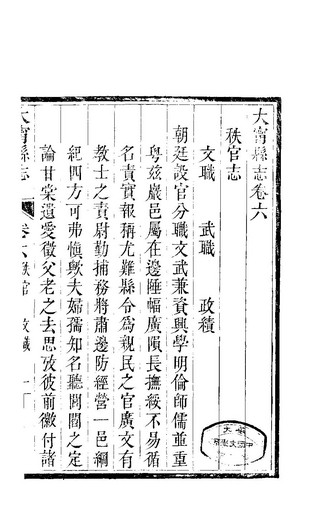 大甯縣志卷六
秩官志
文職 武職 政績
朝廷設官分職文武兼資興學明倫師儒並重
粵茲巖邑屬在邊陲幅廣隕長撫綏不易循
名責實報稱尤難縣令為親民之官廣文有
教士之責尉勤捕務將肅邊防經營一邑綱
紀四方可弗慎歟夫婦孺知名聽閭閻之定
論甘棠遺愛徵父老之去思攷彼前徽付諸
大甯縣志 卷六 秩官 文職 一